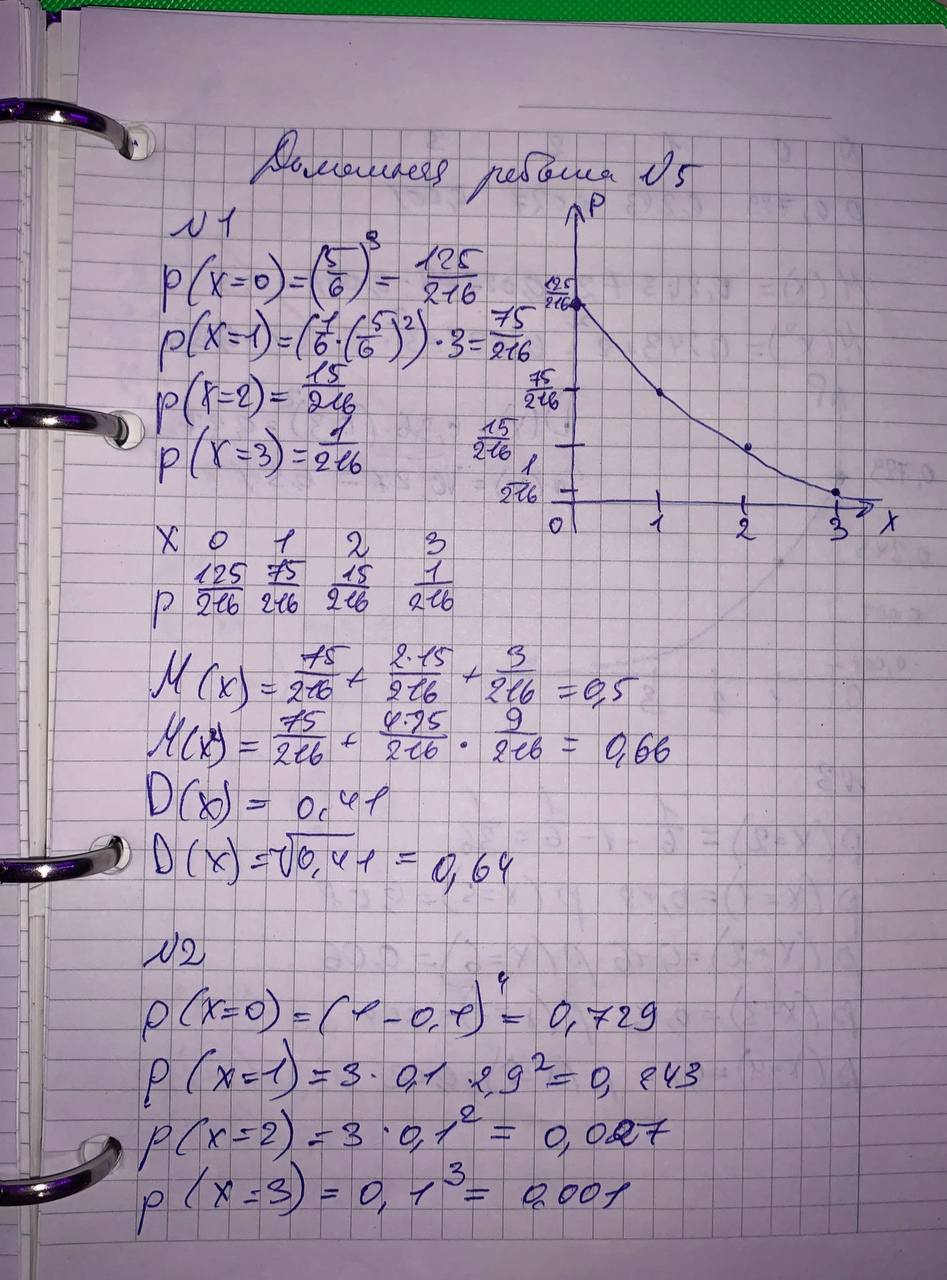 Домашняя работа №5
№1
P(X=0)=(5/6)³=125/216
P(X=1)=(1/6·(5/6)²)·3=75/216
P(X=2)=15/216
P(X=3)=1/216
P
125/216
75/216
15/216
1/216
0 1 2 3 X
X 0 1 2 3
P 125/216 75/216 15/216 1/216
M(x)=75/216+2·15/216+3/216=0,5
M(x²)=75/216+4·15/216·9/216=0,66
D(x)=0,41
D(x)=√0,41=0,64
№2
P(x=0)=(1-0,1)⁴=0,729
P(x=1)=3·0,1·2,9²=0,243
P(x=2)=3·0,1²=0,027
P(x=3)=0,1³=0,001